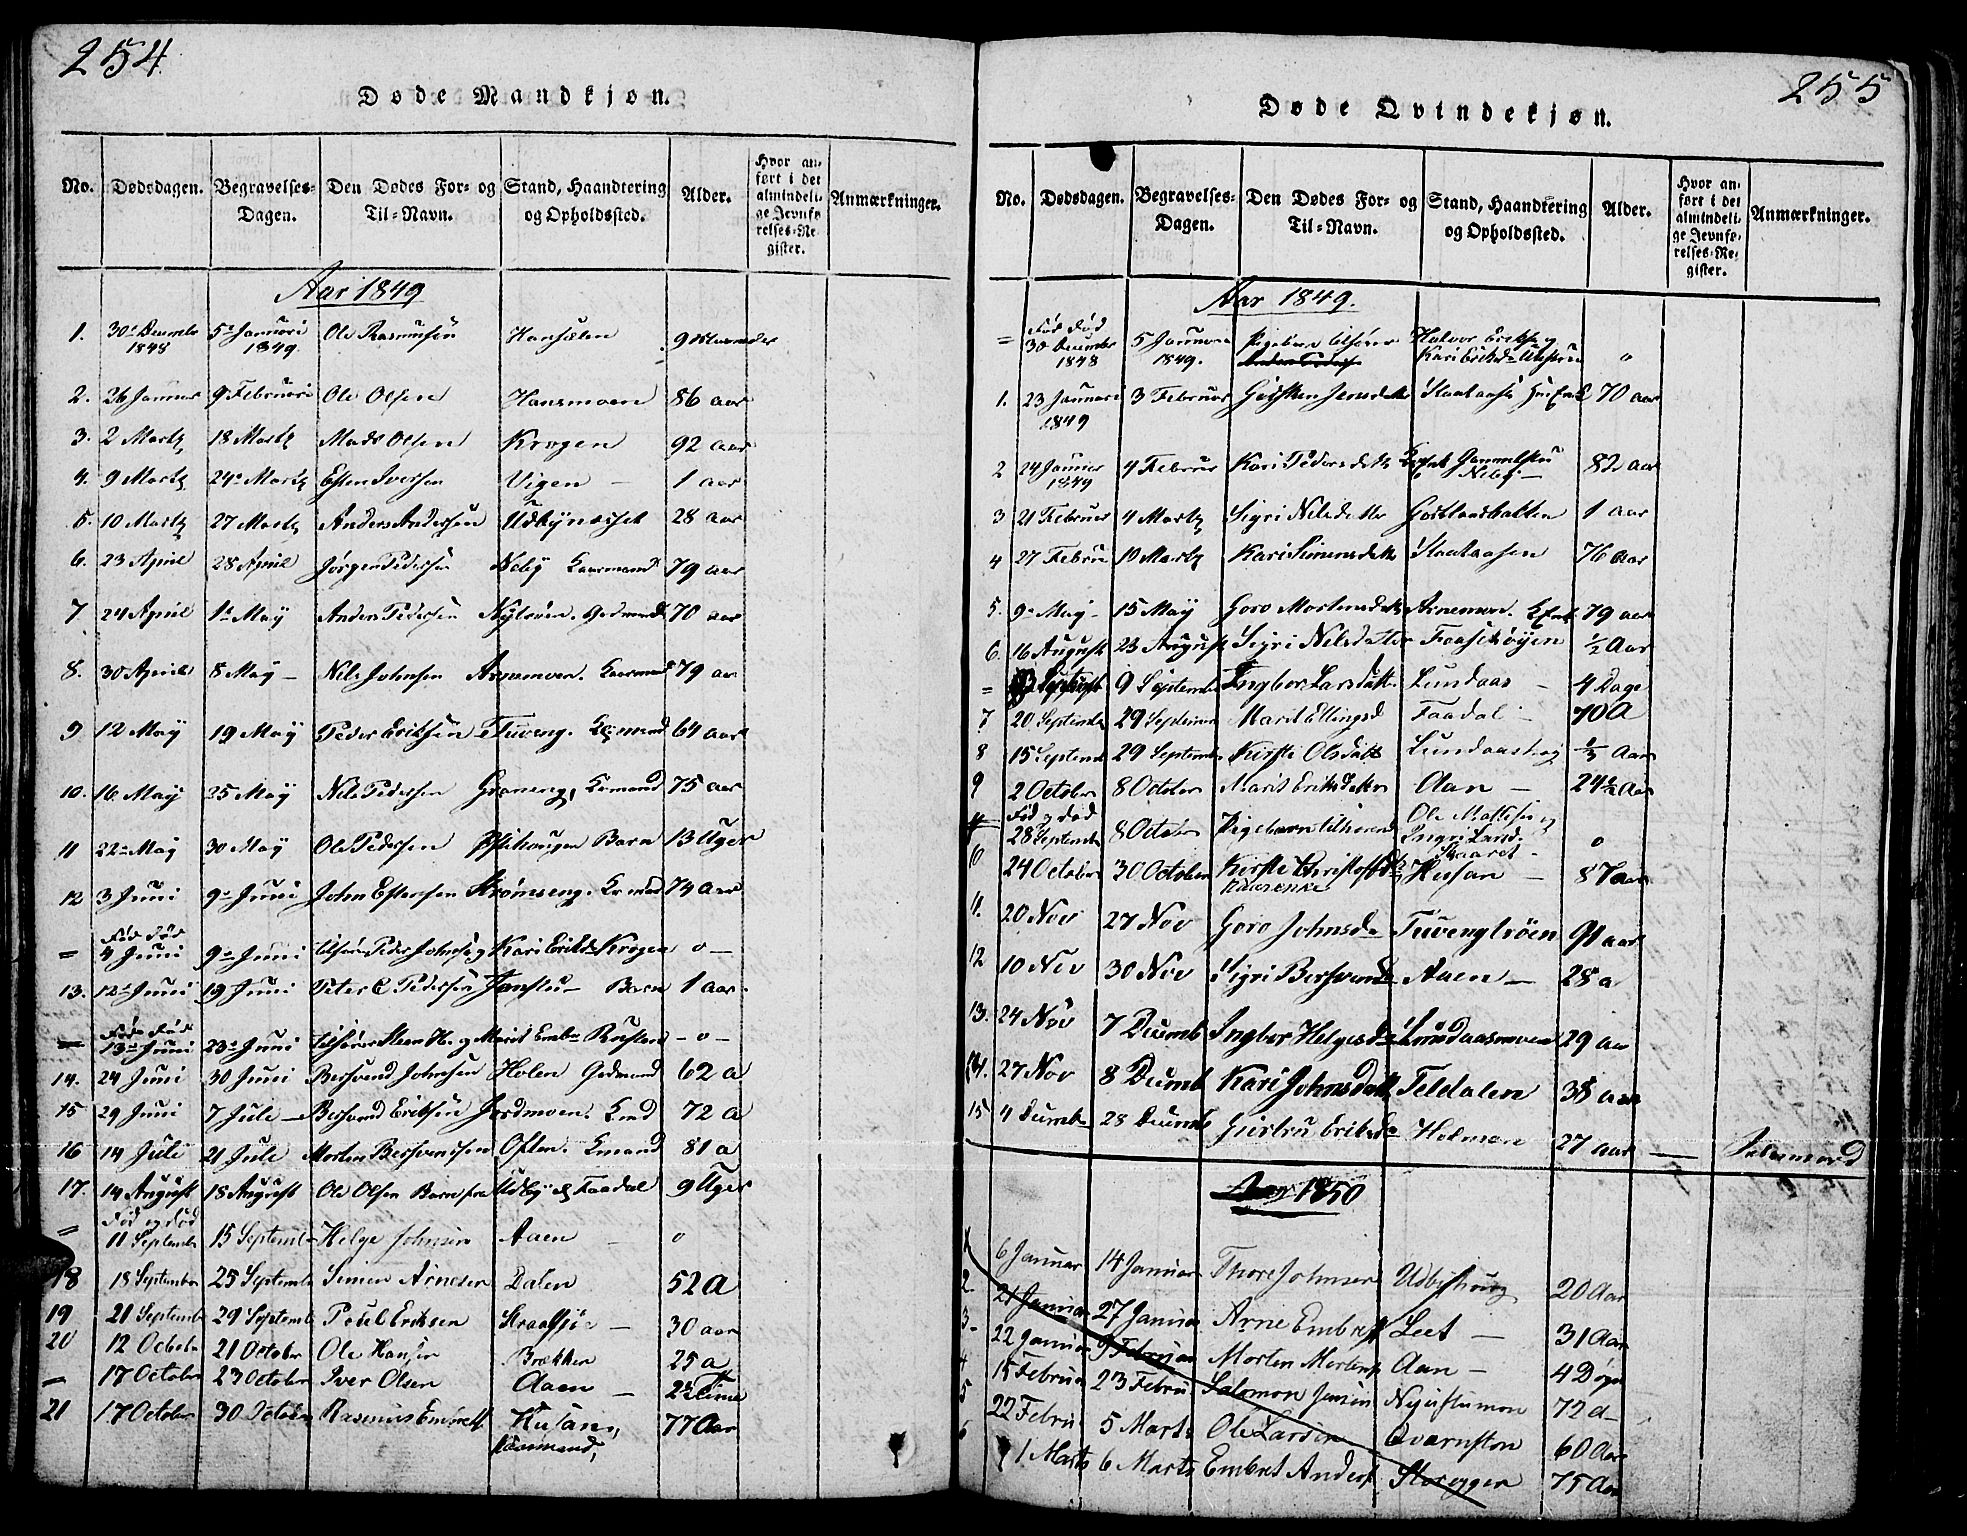 254
Døde Mandkjøn.
No. Dødsdagen. Begravelses-Dagen. Den Dødes For- og Til-Navn. Stand, Haandtering og Opholdssted. Alder. Hvor anført i det almindelige Jevnførelses-Register. Anmærkninger.
Aar 1849
1. 30te Decembr 1848 5te Januari 1849. Ole Rasmussen 9 Maaneder
2. 26 Januar 9 Februari Ole Olsen Hansmoen 86 aar
3. 2 Martz 18 Martz Mads Olsen Krogen 92 aar
4. 9 Martz 24de Martz Esten Iversen Vigen – 1 aar
5. 10 Martz 27 Martz Anders Andersen 28 aar
6. 23 Aprill 28 Aprill Jørgen Pedersen Neby Kaarmand 79 aar
7 24 Aprill 1te May Anders Pedersen Godmand 70 aar
8. 30 Aprill 8 May – Nils Johnsen Arnemoen. Kaarmand 79 aar
9 12 May 19 May Peder Eriksen Tuveng. 64 aar
10. 16 May 25 May Nils Pedersen 75 aar
11 22de May 30 May Ole Pedersen Barn 13 Uger
12 3 Juni 9de Juni John Estensen Strømseng. 74 aar
= Død Fød 4 Juni 9de Juni Peder Johnsen og Kari Eriksd Krogen o –
13. 12te Juni 19 Juni Peter E Pedersen Barn 1 aar
= Fød Død 13de Juni 23de Juni – o –
14. 24 Juni 30 Juni Bersvend Johnsen Holen Godmand 62 a
15 29 Juni 7 Jule – Bersvend Eriksen Jordmoen. 72 a
16 14 Jule 21 Jule Morten Bersvendsen 81 a
17. 14 August 18 August Ole Olsen Barn fra Udby Faadal 9 Uger
= Fød og død 11 Septembr 15 Septembr Helge Johnsen Aaen – o
18 18 Septembr 25 Septembr Simen Arnesen Dalen 52 a
19 21 Septembr 29 Septemb Poul Eriksen – 30 aar
20 12 Octobr 21 Octobr Ole Hansen Brækken 25 a
– 17 Octobr 23 Octobr Iver Olsen Aaen –
21 17 Octobr 30 Octobr Rasmus Embretsen Husan, Kaarmand, 77 Aar
255
Døde Qvindekjøn.
No. Dødsdagen. Begravelses-Dagen. Den Dødes For- og Til-Navn. Stand, Haandtering og Opholdssted. Alder. Hvor anført i det almindelige Jevnførelses-Register. Anmærkninger.
Aar 1849.
= Fød Død 30 Decembr 1848 5 Januar 1849. Pigebarn tilhører Halvor Eriksen og o
1. 23 Januari 1849 3 Februar 70 aar
2 24 Januar 1849 4 Februar Kari Pedersdatter Neby – 82 aar
3 21 Februar 4 Martz Sigri Nilsdatter 1 aar
4 27 Februar 10 Martz Kari Simensdatter 76 aar
5. 9de May – 15 May Goro Mortensdatter Arnemoen. 79 aar
6. 16 August 23 August Sigri Nilsdatter Faaskøyen ½ Aar
= 9 Septembr Ingbor Larsdatt. Lundaas – 4 Dage
7 20 Septembr 29 Septembr Marit Ellingsd Faadal – 70 A
8 15 Septembr 29 Septembr Kirsti Olsdatt Lundaashaug Aar
9 2 Octobr 8 Octobr Marit Eriksdatter Aan – 24½ Aar
Fød og død 28 Septembr 8 Octobr Pigebarn tilhørende Ole Mattisen og o
10 24 Octobr 30 Octobr Kirsti Christofd Husan – 87 aar
11. 20 Nov 27 Nov Goro Johnsd Tuvengtrøen 91 aar
12 10 Nov 30 Nov Sigri Bersvendsd Aaen – 28 a
13. 24 Nov 7 Decemb Ingbor Helgesd Lundaasmoen 29 aar
14. 27 Nov 8 Decemb Kari Johnsdatt Feldalen 38 aar
15 4 Decembr 28 Decembr Giertru Eriksd Holman 27 aar –
Aar 1850
1 6 Januar 14 Januar Thore Johnsen Udbyhaug 20 Aar
2. 21 Januar 27 Januar Arne Embretsen Leet – 31 Aar
3 – 22 Januar 9 Februar Morten Mortens Aan – 4 Døgn
4 15 Februar 23 Februar Salomon Jensen 72 a –
5 22 Februar 5 Marts Ole Larsen 60 Aar
6 1 Marts 6 Marts Embret Anders Storeggen 75 Aar